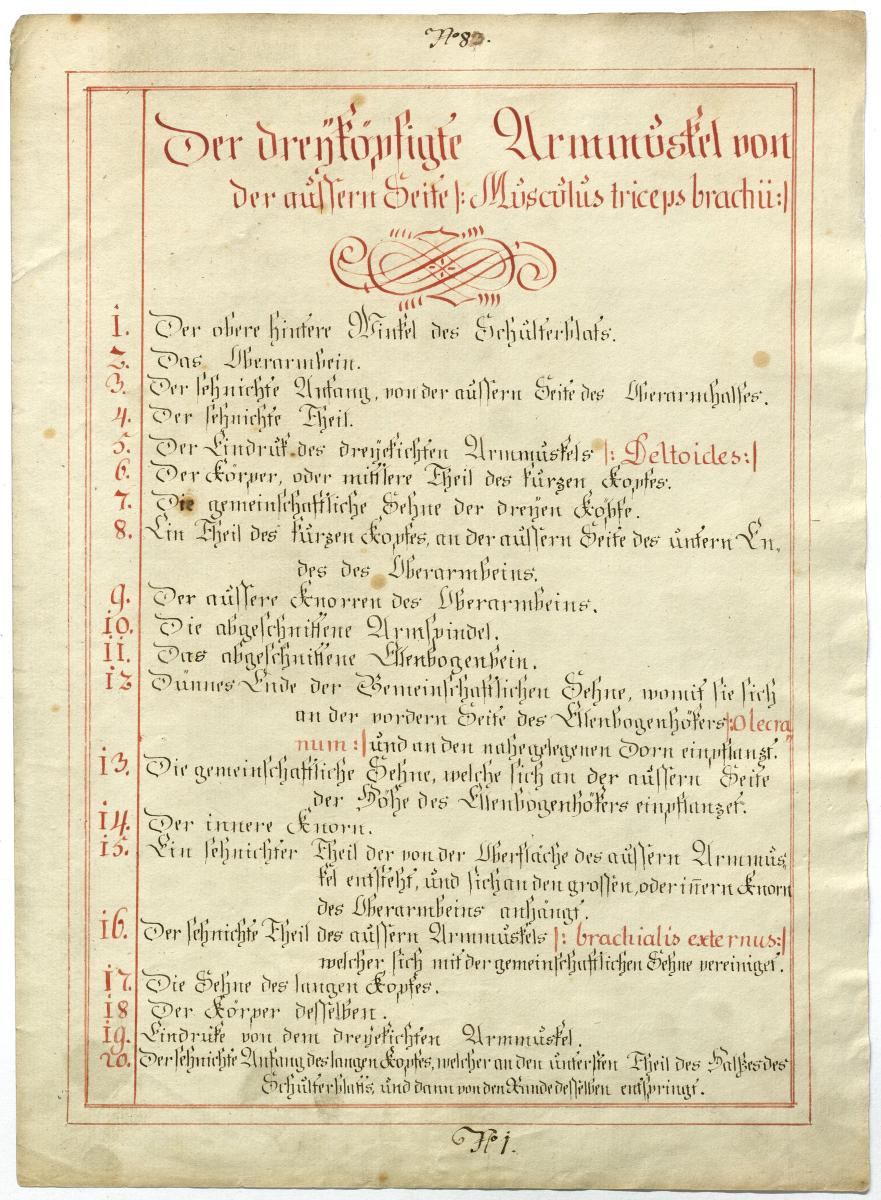 No 83.
Der dreÿköpfigte Armmuskel von
der aussern Seite |: Musculus triceps brachii :|
1. Der obere hintere Winkel des Schulterblats.
2. Das Oberarmbein.
3. Der sehnichte Anfang, von der aussern Seite des Oberarmhalses.
4. Der sehnichte Theil.
5. Der Eindruk des dreÿekichten Armmuskels |: Deltoides :|
6. Der Körper, oder mittlere Theil des kurzen Kopfes.
7. Die gemeinschaftliche Sehne der dreÿen Köpfe.
8. Ein Theil des kurzen Kopfes, an der aussern Seite des untern En,
des des Oberarmbeins.
9. Der aussere Knorren des Oberarmbeins.
10. Die abgeschnittene Armspindel.
11. Das abgeschnittene Ellenbogenbein.
12 Dünnes Ende der Gemeinschaftlichen Sehne, womit sie sich
an der vordern Seite des Ellenbogenhökers |: Olecra
num :| und an den nahe gelegenen Dorn einpflanzt.
13. Die gemeinschaftliche Sehne, welche sich an der aussern Seite
der Höhe des Ellenbogenhökers einpflanzet.
14. Der innere Knorn.
15. Ein sehnichter Theil der von der Oberfläche des aussern Armmus,
kel entsteht, und sich an den grossen, oder iñern Knorn
des Oberarmbeins anhängt.
16. Der sehnichte Theil des aussern Armmuskels |: brachialis externus :|
welcher sich mit der gemeinschaftlichen Sehne vereiniget.
17. Die Sehne des langen Kopfes.
18 Der Körper desselben.
19. Eindruke von dem dreÿekichten Armmuskel.
20. Der sehnichte Anfang des langen Kopfes, welcher an den untersten Theil des Halses des
Schulterblatts, und dann von den Rande desselben entspringt.
No 1.